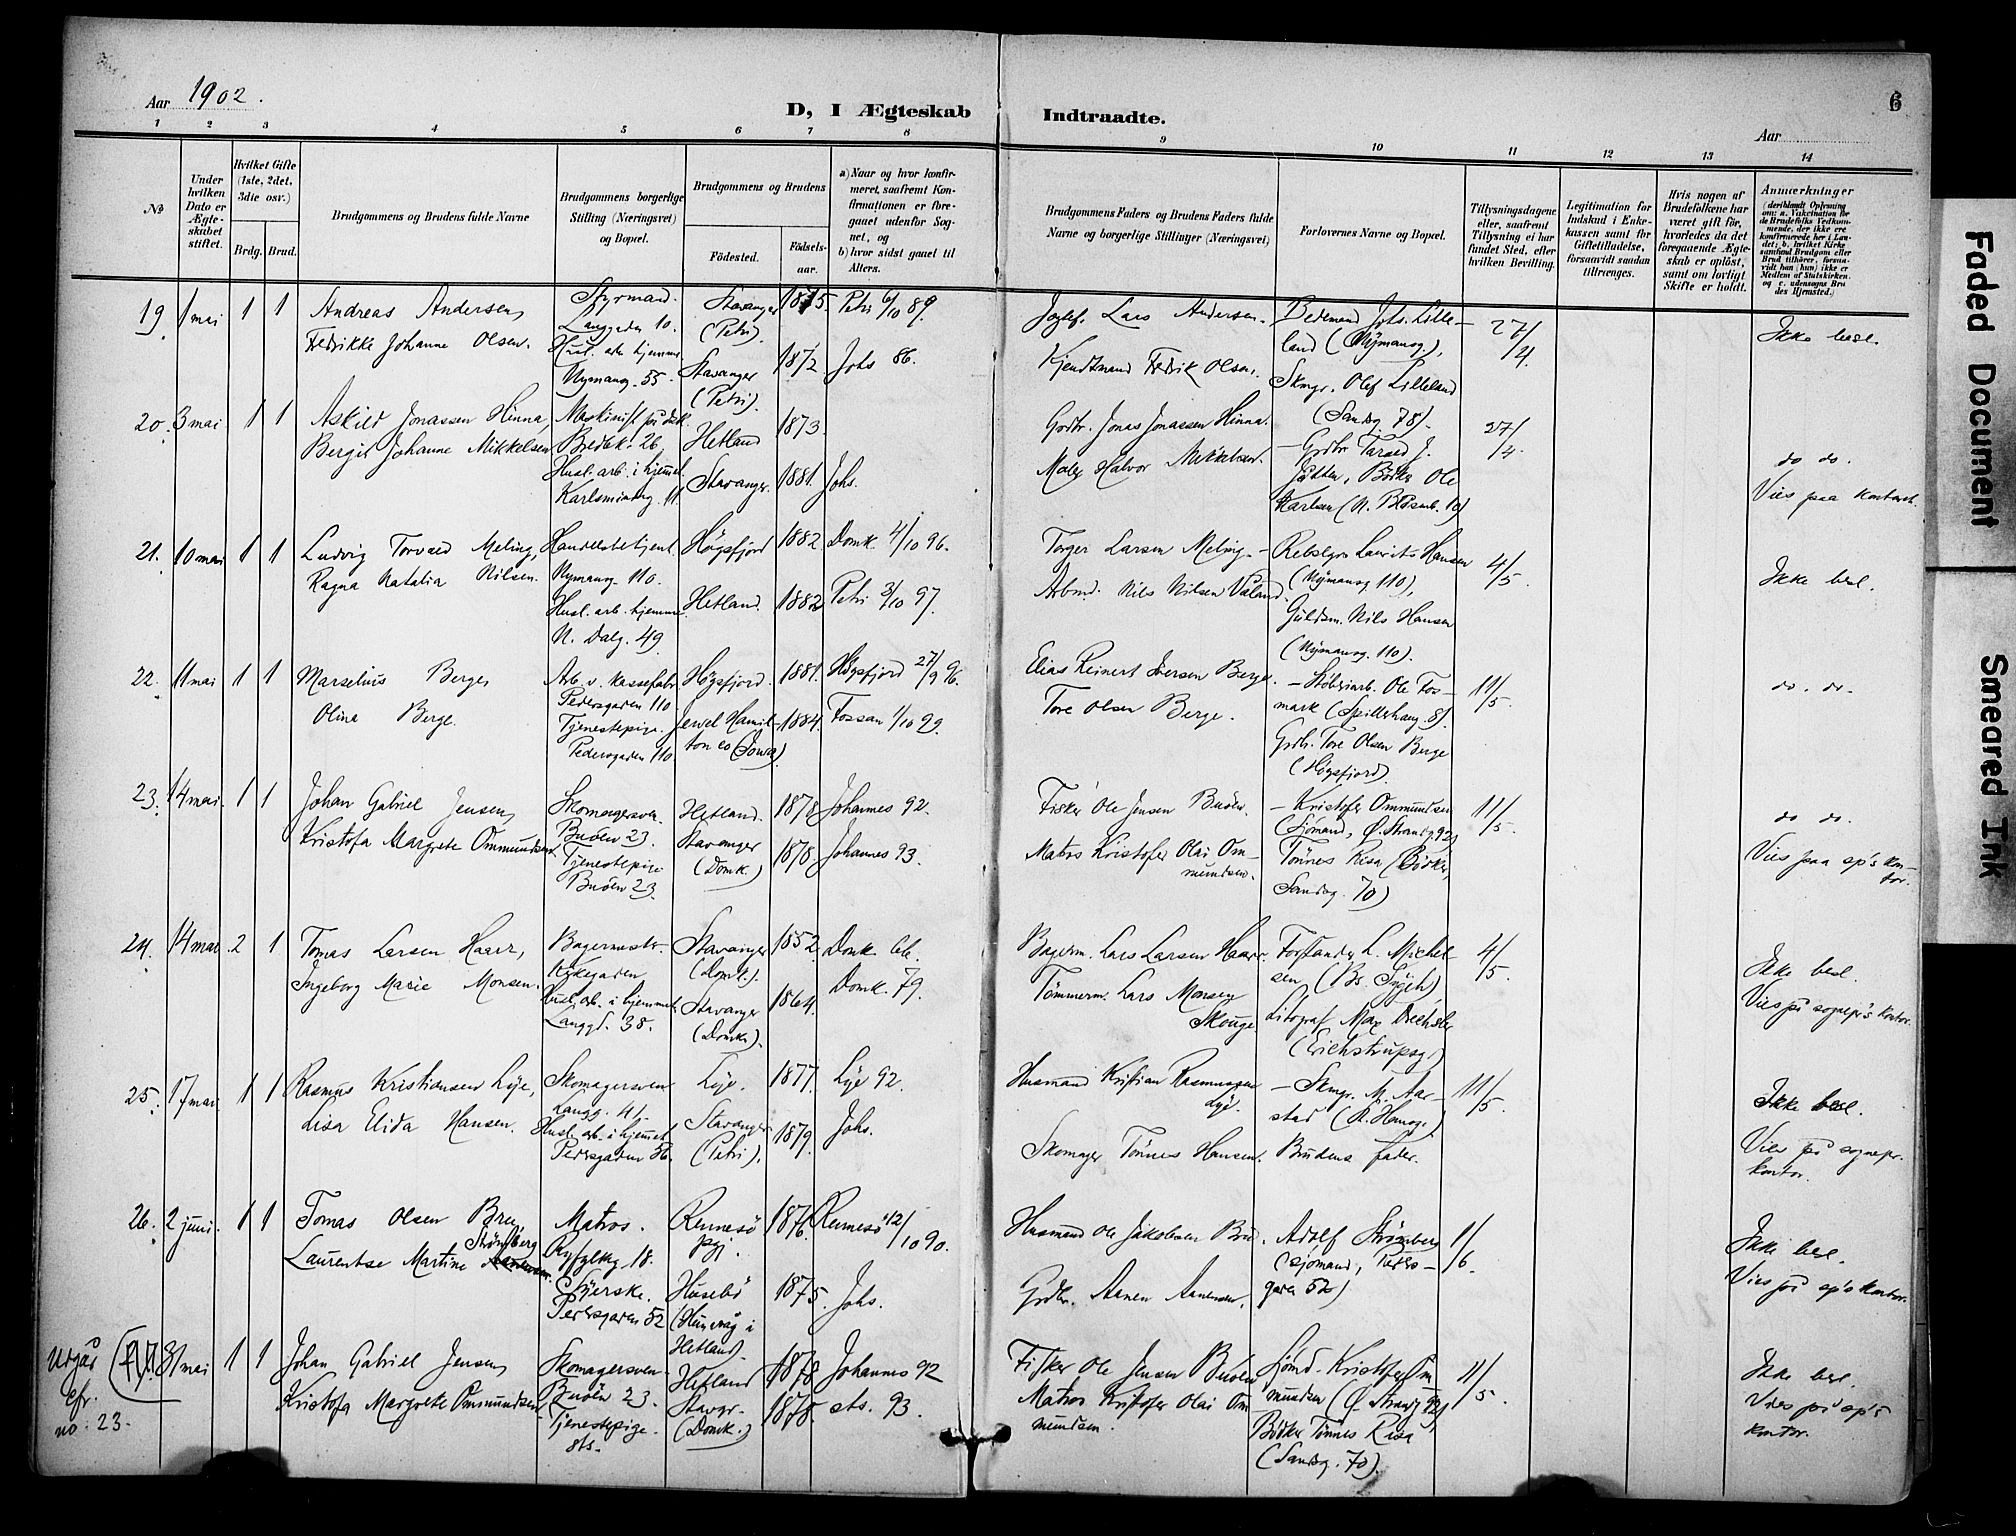 Aar 1902.
D, I Ægteskab Indtraadte.
Aar
6
1 2 3 4 5 6 7 8 9 10 11 12 13 14
No
Under hvilken Dato er Ægteskabet stiftet.
Hvilket Gifte (1ste, 2det, 3die osv.)
Brdg. Brud.
Brudgommens og Brudens fulde Navne
Brudgommens borgerlige Stilling (Næringsvei) og Bopæl.
Brudgommens og Brudens
Fødested. Fødselsaar.
a) Naar og hvor konfirmeret, saafremt Konfirmationen er foregaaet udenfor Sognet, og
b) hvor sidst gaaet til Alters.
Brudgommens Faders og Brudens Faders fulde Navne og borgerlige Stillinger (Næringsvei)
Forlovernes Navne og Bopæl.
Tillysningsdagene eller, saafremt Tillysning ei har fundet Sted, efter hvilken Bevilling.
Legitimation for Indskud i Enkekassen samt for Giftetilladelse, forsaavidt saadan tiltrænges.
Hvis nogen af Brudefolkene har været gift før, hvorledes da det foregaaende Ægteskab er opløst, samt om lovligt Skifte er holdt.
Anmærkninger (deriblandt Oplysning om: a. Vakcination for de Brudefolks Vedkommende, der ikke ere konfirmerede her i Landet; b. hvilket Kirkesamfund Brudgom eller Brud tilhører, forsaavidt han (hun) ikke er Medlem af Statskirken, og c. udensogns Brudes Hjemsted.)
19. 1 mai 1 1 Andreas Andersen, Styrmand. Stavanger 1875 Petri 6/10 89.
Fedrikke Johanne Olsen. Langgaden 10. (Petri).
Husl. arb. hjemme Stavanger 1872 Johs 86.
Nymansg. 55. (Petri).
Lars Andersen. Dedemand Johs. Lilleland (Nymansg.), 27/4 Ikke besl.
Kjendtmand Fedrik Olsen. Skmgr. Olef Lilleland (Sandsg. 78).
20. 3 mai 1 1 Askild Jonassen Hinna, Maskinist på dsk. Hetland 1873.
Bergit Johanne Mikkelsen Bredbk. 26.
Husl. arb. i hjemmet Stavanger. 1881. Johs.
Karlsminneg. 11.
Grdbr. Jonas Jonassen Hinna. — Grdbr. Tarald J. 27/4. do do.
Halvor Mikkelsen. Gutten, Bødker Ole Karlsen (N. Blåsenb. 10) Vies paa kontoret.
21. 10 mai 1 1 Ludvig Torvald Meling, Handelsbetjent. Høgsfjord 1882 Domk. 4/10 96.
Ragna Natalia Nilsen. Nymansg. 110.
Husl. arb. hjemme Hetland. 1882 Petri 3/10 97.
N. Dalg. 49.
Torger Larsen Meling. — Rebslgr. Laurits Hansen 4/5. Ikke besl.
Arbmd. Nils Nilsen Våland. (Nymansg 110),
Guldsm. Nils Hansen (Nymansg. 110).
22. 11 mai 1 1 Marselius Berge, Arb. v. kassefabr. Høgsfjord. 1881. Høgsfjord 27/9 96.
Olina Berge. Pedersgaden 110
Tjenestepige. Jewel Hamilton co (Iowa) 1884. Fossan 1/10 99.
Pedersgaden 110.
Elias Reinert Iversen Berge. — Støberiarb. Ole Fosmark (Spilderhaug. 8). 11/5. do. do.
Tore Olsen Berge. Grdb. Tore Olsen Berge (Høgsfjord).
23. 14 mai. 1 1 Johan Gabriel Jensen, Skomagersven. Hetland. 1878 Johannes 92.
Kristofa Margrete Ommundsen Buøen 23. Stavanger (Domk.) 1878. Johannes 93.
Tjenestepige Buøen 23.
Fisker Ole Jensen Buøen. — Kristofer Ommundsen 11/5. do do.
Matros Kristofer Olai Ommundsen. (Sjømand, Ø. Strandg. 92)
Tønnes Risa (Bødker, Sandsg. 70) Vies paa sp's kontor.
24. 14 mai. 2 1 Tomas Larsen Haarr, Bagermester. Stavanger (Domk.). 1852 Domk.
Ingeborg Marie Monsen. Kirkegaden
Husl. arb. i hjemmet. Stavanger (Domk.). 1864. Domk. 79.
Langgd. 38.
Bagerm. Lars Larsen Haarr. Forstander L. Michelsen (Bs. Sygeh.) 4/5. Ikke besl.
Tømmerm. Lars Monsen Skouge. Litograf Max Drechsler (Erichstrupsg.) Vies på sognepr's kontor.
25. 17 mai 1 1 Rasmus Kristiansen Lye, Skomagersven Lye. 1877. Lye 92.
Lisa Elida Hansen. Langg. 41.
Husl. arb. i hjemmet. Stavanger (Petri). 1879. Johs.
Pedersgaden 56.
Husmand Kristian Rasmussen Lye. — Skmgr. M. Aarstad (R. Hansg.) 11/5. Ikke besl.
Skomager Tønnes Hansen. Brudens fader. Vies på sognepr. kontor.
26. 2 juni. 1 1 Tomas Olsen Bru, Matros. Rennesø pgj. 1876. Rennesø 12/10 90.
Laurentse Martine Strømberg Ryfylkg. 18.
Syerske. Husebø (Hunvåg i Hetland). 1875. Johs.
Pedersgaden 52
Husmand Ole Jakobsen Bru. Adolf Strømberg (sjømand, Pedersgaden 52) 1/6. Ikke besl.
Grdbr. Aanen Aanensen. Vies på sp's kontor.
Udgår cfr. no: 23.
(27.) 31 mai 1 1 Johan Gabriel Jensen, Skomagersven Hetland 1878 Johannes 92
Kristofa Margrete Ommundsen Buøen 23. Stavgr. (Domk.) 1878. sts. 93.
Tjenestepige. sts.
Fisker Ole Jensen Buøen Sjømd. Kristofer Ommundsen (Ø. Strandg 92) 11/5 Ikke besl.
Matros Kristofer Olai Ommundsen. Bødker Tønnes Risa (Sandsg. 70). Vies på sp's kontor.
Faded Document
Smeared Ink